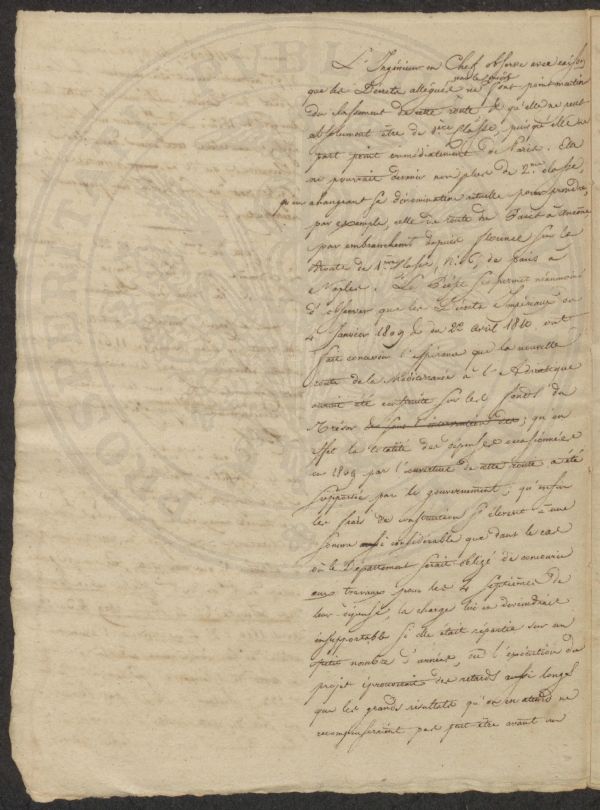 L'Ingénieur en Chef observe avec raison
que les Décrets allégués ne font point mention
du classement de cette route & qu'elle ne peut
absolument être de 1ère classe, puisqu'elle ne
part point immédiatement de Paris. Elle
ne pourrait devenir non plus de 2me classe,
qu'en changeant sa dénomination actuelle pour prendre,
par exemple, celle de route de Paris à Ancône
par embranchement depuis Florence sur la
Route de 1ère Classe, N.o 6, de Paris à
Naples. Le Préfet se permet néanmoins
d'observer que les Décrets Impériaux du
4 Janvier 1809 & du 22 avril 1810 ont
fait concevoir l'espérance que la nouvelle
route de la Méditerranée à l'Adriatique
aurait été construite sur les fonds du
Trésor; qu'en
effet la totalité des dépenses occasionnées
en 1809 par l'ouverture de cette route a été
supportée par le gouvernement; qu'enfin
les frais de construction s'élèvent à une
somme aussi considérable que dans le cas
où le Département serait obligé de concourir
aux travaux pour les 4 septièmes de
leur dépense, la charge lui en deviendrait
insupportable si elle était répartie sur un
petit nombre d'années, ou l'exécution du
projet éprouverait des retards aussi longs
que les grands résultats qu'on en attend ne
recompenseraient pas peut être avant un